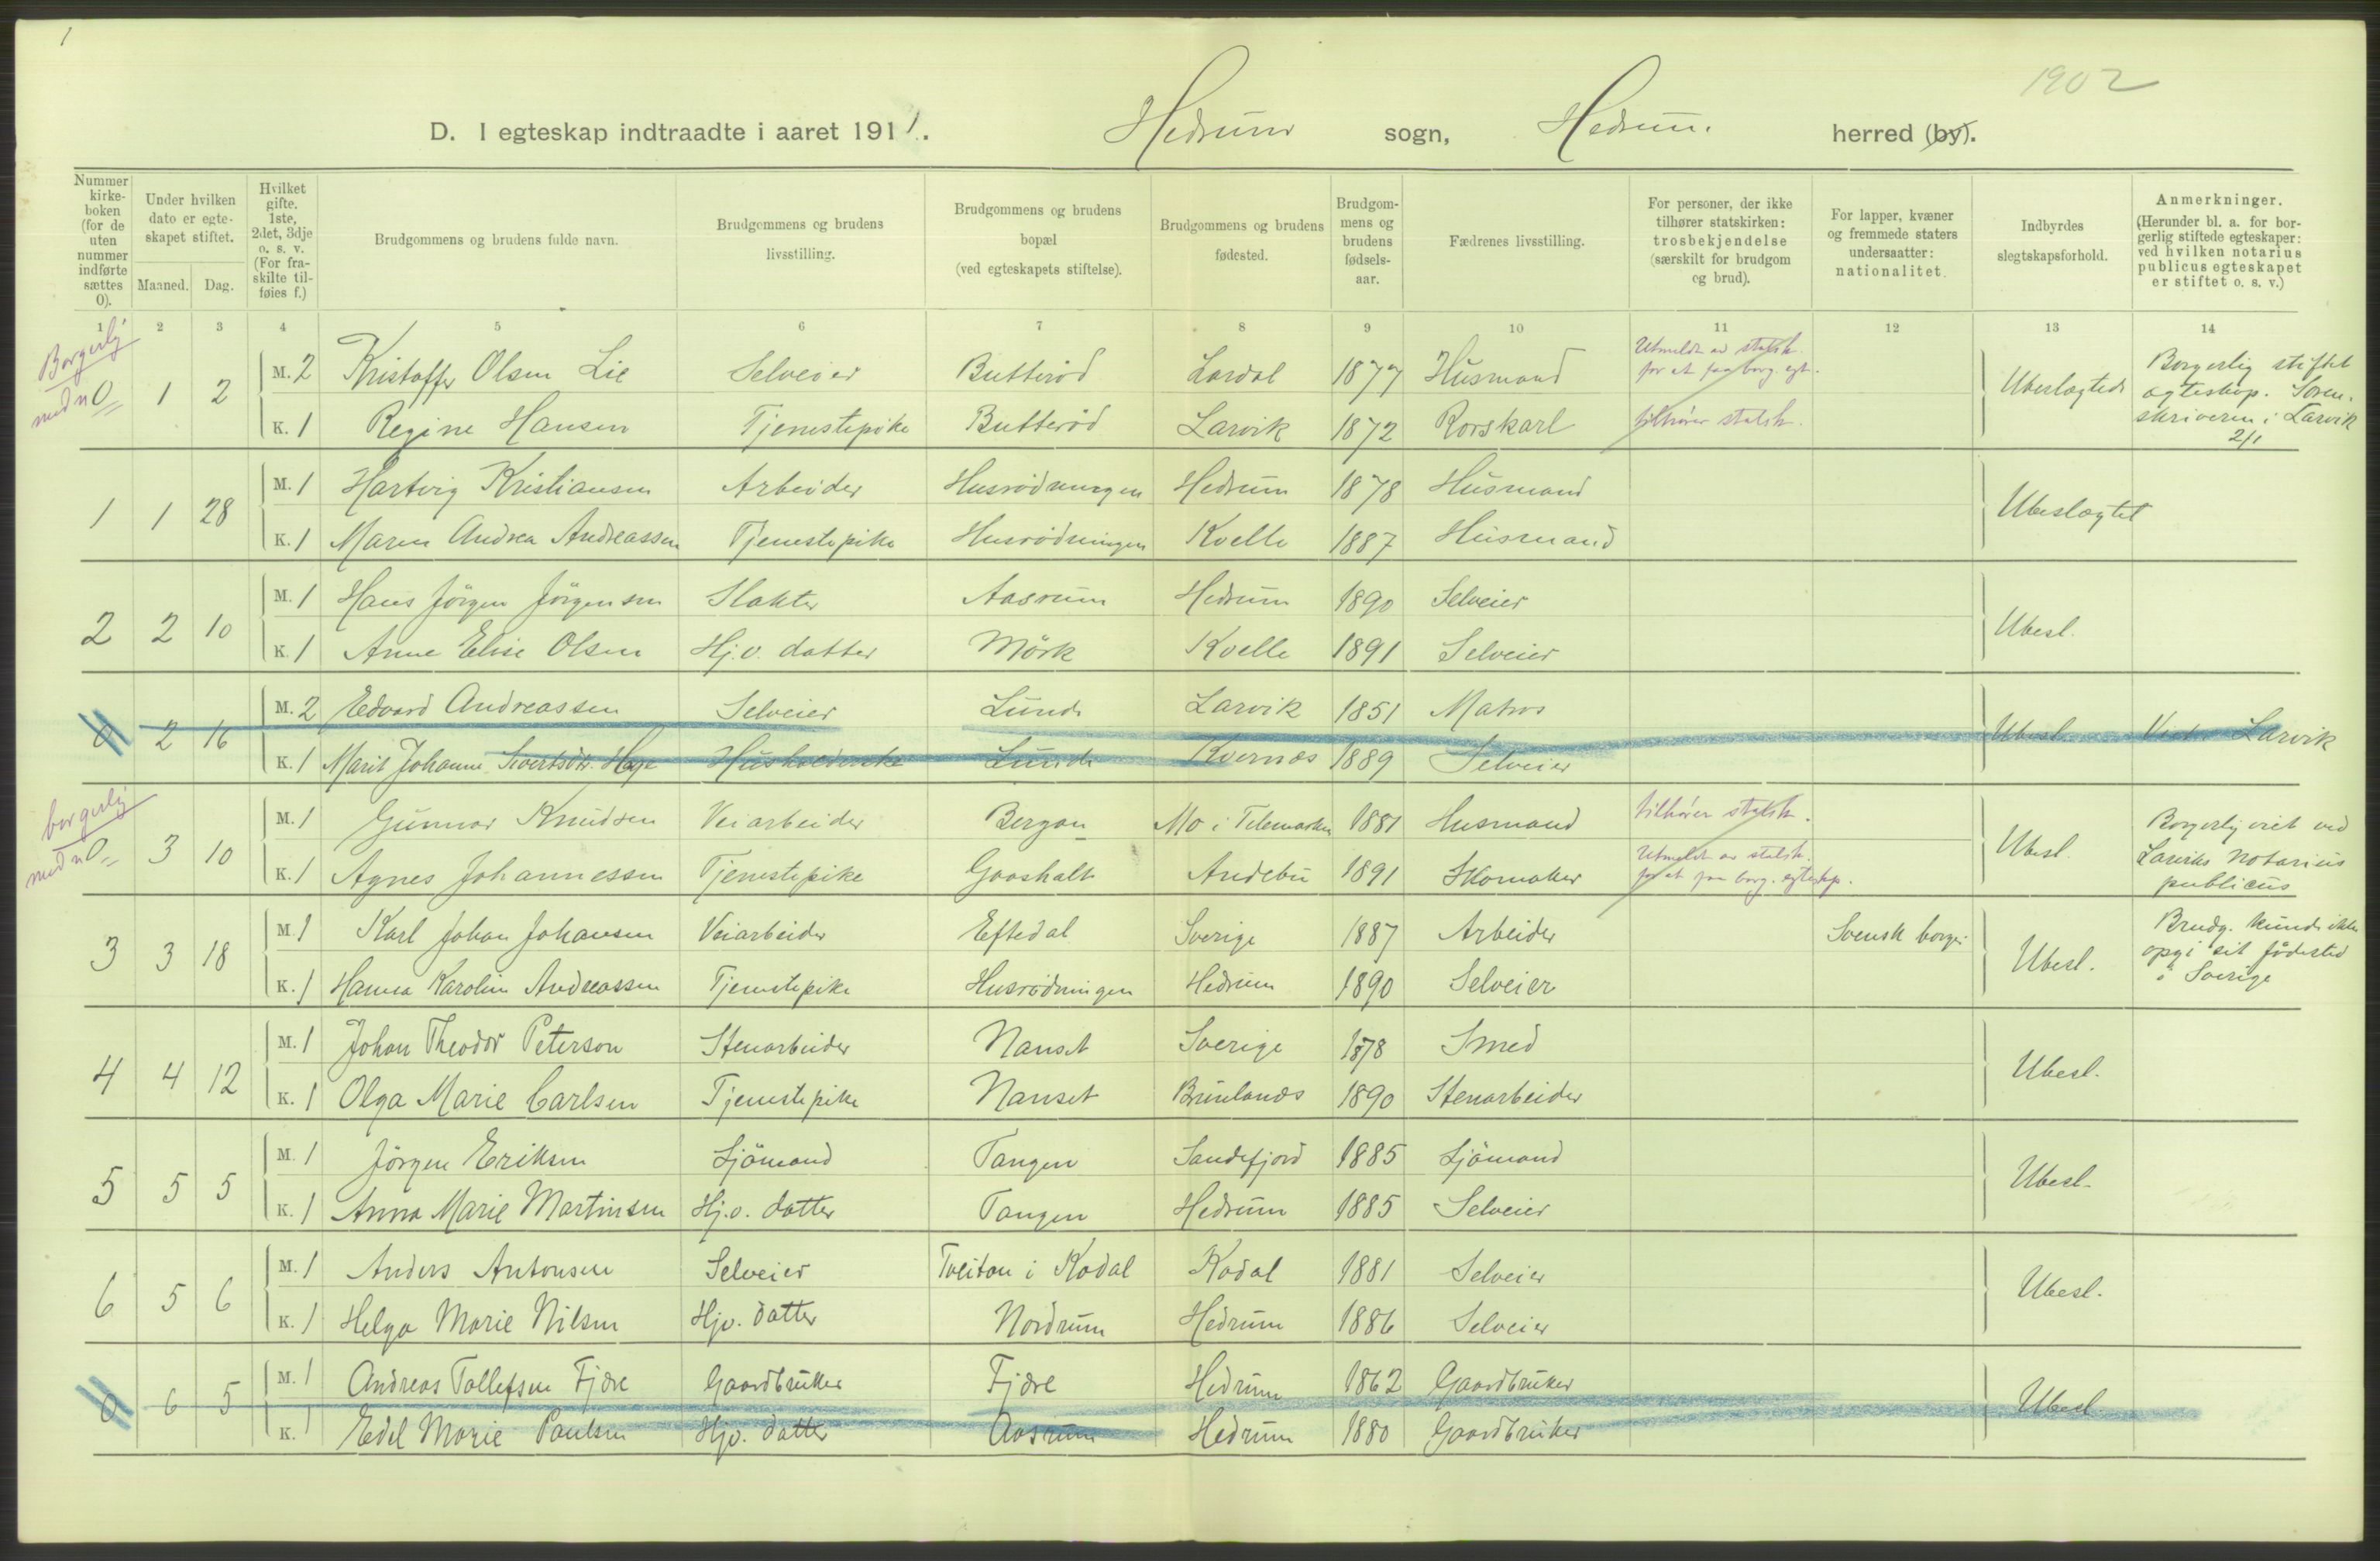 1
1902
D. I egteskap indtraadte i aaret 1911. Hedrum sogn, Hedrum. herred (by).
Nummer i kirkeboken (for de uten nummer indførte sættes 0). Under hvilken dato er egteskapet stiftet. Maaned. Dag. Hvilket gifte. 1ste, 2det, 3dje o. s. v. (For fraskilte tilføies f.) Brudgommens og brudens fulde navn. Brudgommens og brudens livsstilling. Brudgommens og brudens bopæl (ved egteskapets stiftelse). Brudgommens og brudens fødested. Brudgommens og brudens fødselsaar. Fædrenes livsstilling. For personer, der ikke tilhører statskirken: trosbekjendelse (særskilt for brudgom og brud). For lapper, kvæner og fremmede staters undersaatter: nationalitet. Indbyrdes slegtskapsforhold. Anmerkninger. (Herunder bl. a. for borgerlig stiftede egteskaper: ved hvilken notarius publicus egteskapet er stiftet o. s. v.)
1 2 3 4 5 6 7 8 9 10 11 12 13 14
Borgerlig
med n 0 1 2 M. 2 Kristoffer Olsen Lie Selveier Butteröd Lardal 1877 Husmand Utmeldt av statsk. for at faa borg. egt. Ubeslægtede Borgerlig stiftet egteskap. Soren-
K. 1 Regine Hansen Tjenestepike Butteröd Larvik 1872 Rorskarl tilhører statsk. skriveren i Larvik 2/1
1 1 28 M. 1 Hartvig Kristiansen Arbeider Husrödningen Hedrum 1878 Husmand Ubeslægtet
K. 1 Maren Andrea Andreassen Tjenestepike Husrödningen Kvelle 1887 Husmand
2 2 10 M. 1 Hans Jörgen Jörgensen Slakter Aasrum Hedrum 1890 Selveier Ubesl.
K. 1 Anne Elise Olsen Hj.v. datter Mörk Kvelle 1891 Selveier
0 2 16 M. 2 Edvard Andreassen Selveier Lunde Larvik 1851 Matros Ubesl. Larvik
K. 1 Marit Johanne Sivertsdtr. Husholderske Lunde Kvernæs 1889 Selveier
borgerlig
med n 0 3 10 M. 1 Gunnar Knudsen Veiarbeider Bergan Mo i Telemarken 1881 Husmand tilhører statsk. Ubesl. Borgerlig viet ved
K. 1 Agnes Johannessen Tjenestepike Gaasholt Andebu 1891 Skomaker Utmeldt av statsk. for at faa borg. egteskp. Larviks notarius publicus
3 3 18 M. 1 Karl Johan Johansen Veiarbeider Eftedal Sverige 1887 Arbeider Svensk borger Ubesl. Brudg. kunde ikke opgi sit födested
K. 1 Hanna Karoline Andreassen Tjenestepike Husrödningen Hedrum 1890 Selveier i Sverige
4 4 12 M. 1 Johan Theodor Peterson Stenarbeider Nanset Sverige 1878 Smed Ubesl.
K. 1 Olga Marie Carlsen Tjenestepike Nanset Brunlanæs 1890 Stenarbeider
5 5 5 M. 1 Jörgen Eriksen Sjömand Tangen Sandefjord 1885 Sjömand Ubesl.
K. 1 Anna Marie Martinsen Hj.v. datter Tangen Hedrum 1885 Selveier
6 5 6 M. 1 Anders Antonsen Selveier Tveitan i Kodal Kodal 1881 Selveier Ubesl.
K. 1 Helga Marie Nilsen Hjv. datter Nordrum Hedrum 1886 Selveier
0 6 5 M. 1 Andreas Tollefsen Fjære Gaardbruker Fjære Hedrum 1862 Gaardbruker Ubesl.
K. 1 Edel Marie Paulsen Hjv. datter Aasrum Hedrum 1880 Gaardbruker